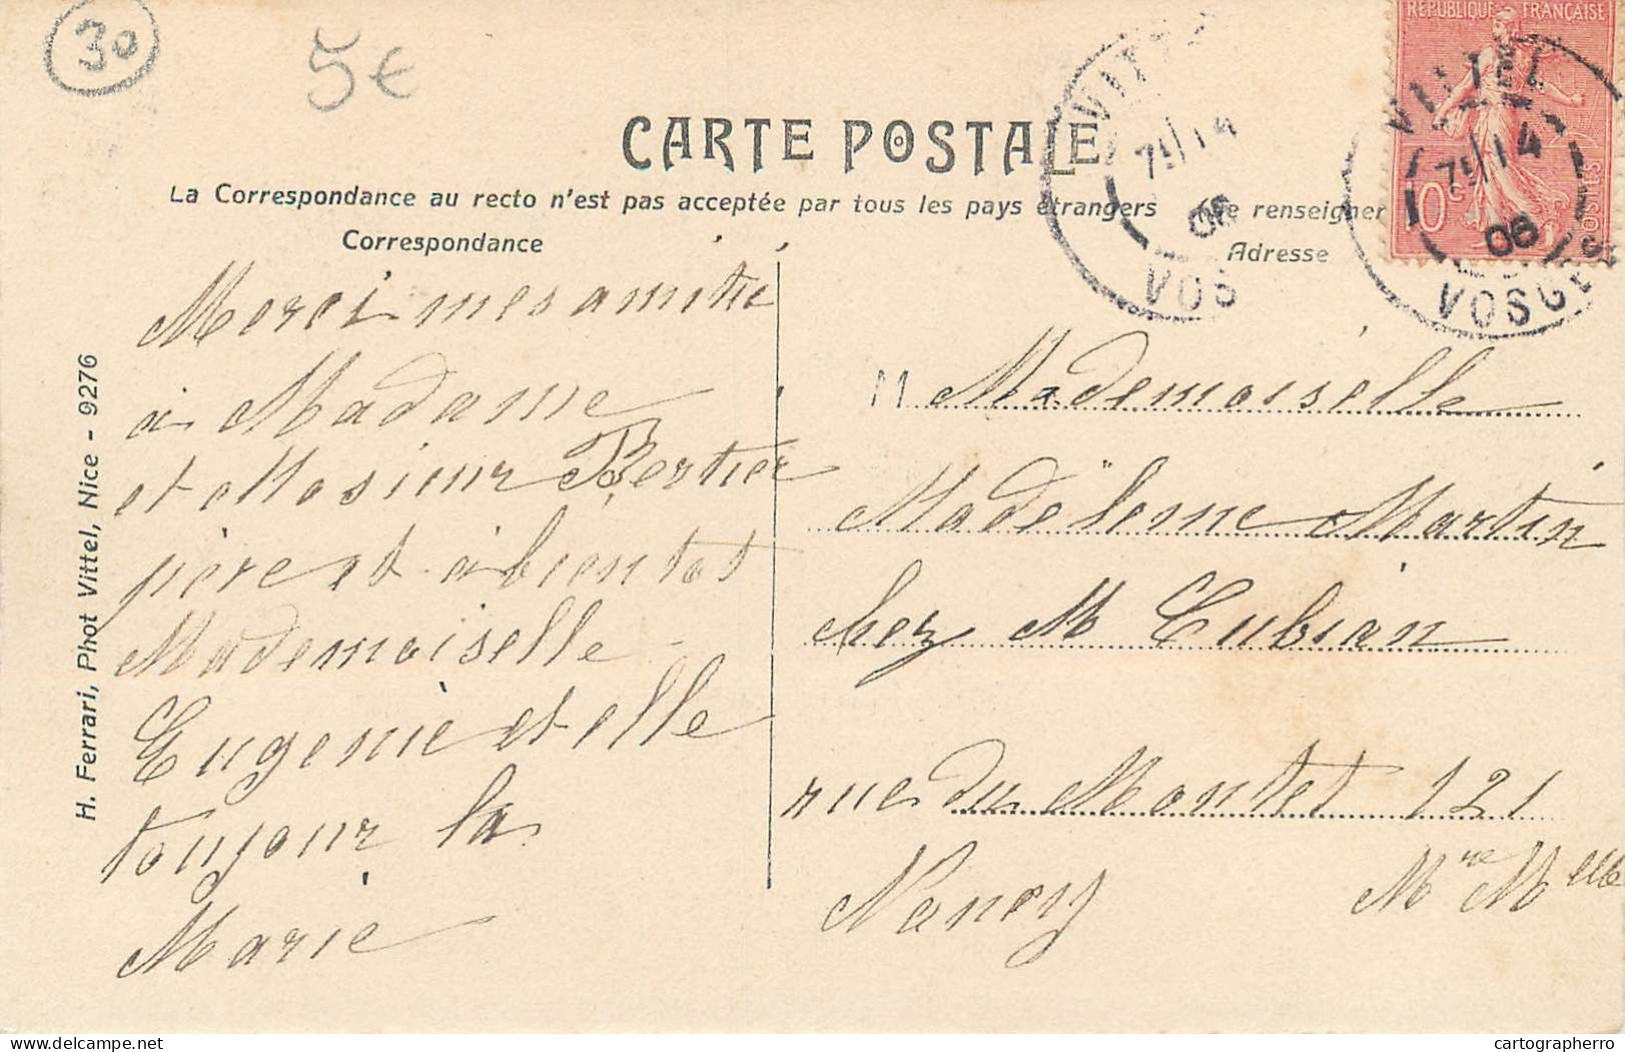 30
5€
RÉPUBLIQUE FRANÇAISE
10c
POSTES
VITTEL
75/14
06
VOSGES
VITTEL
75/14
06
VOSGES
CARTE POSTALE
La Correspondance au recto n'est pas acceptée par tous les pays étrangers
renseigner
Correspondance
Adresse
H. Ferrari, Phot Vittel, Nice - 9276
Merci mes amitie
à Madame
et Mosieur Bertier
père et à bientot
Mademoiselle
Eugenie et elle
toujour la
Marie
M Mademoiselle
Madëleine Martin
chez M Cubian
rue du Montet 121
Nancy
Mre Melle
cartographerro